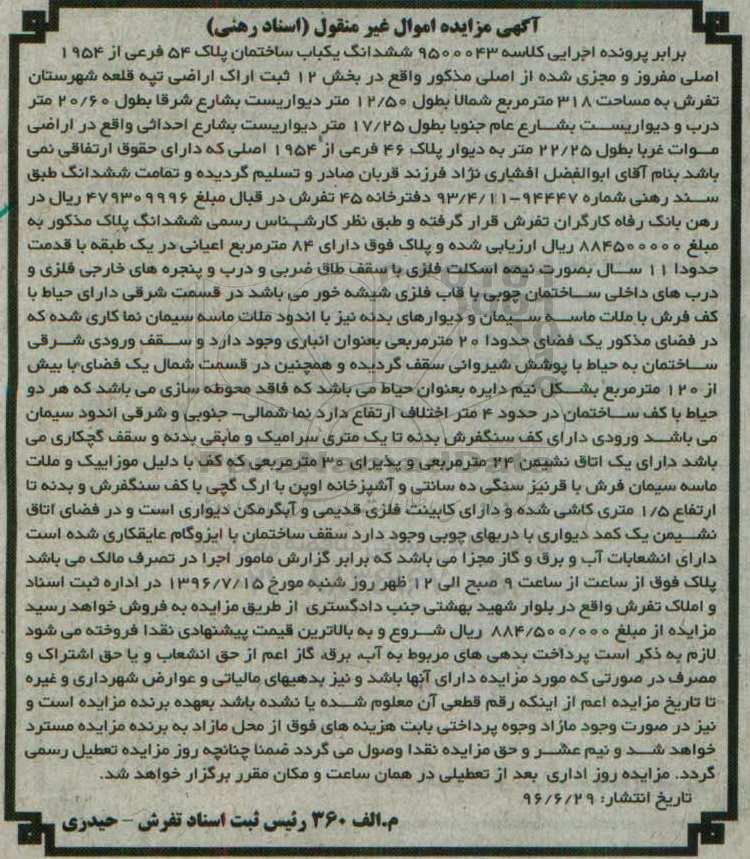 آگهی مزایده اموال غیر منقول (اسناد رهنی)
برابر پرونده اجرایی کلاسه ۹۵۰۰۰۴۳ ششدانگ یکباب ساختمان پلاک ۵۴ فرعی از ۱۹۵۴
اصلی مفروز و مجزی شده از اصلی مذکور واقع در بخش ۱۲ ثبت اراک اراضی تپه قلعه شهرستان
تفرش به مساحت ۳۱۸ مترمربع شمالا بطول ۱۲/۵۰ متر دیواریست بشارع شرقا بطول ۲۰/۶۰ متر
درب و دیواریست بشارع عام جنوبا بطول ۱۷/۲۵ متر دیواریست بشارع احداثی واقع در اراضی
موات غربا بطول ۲۲/۲۵ متر به دیوار پلاک ۴۶ فرعی از ۱۹۵۴ اصلی که دارای حقوق ارتفاقی نمی
باشد بنام آقای ابوالفضل افشاری نژاد فرزند قربان صادر و تسلیم گردیده و تمامت ششدانگ طبق
سند رهنی شماره ۹۴۴۴۷-۹۳/۴/۱۱ دفترخانه ۴۵ تفرش در قبال مبلغ ۴۷۹۳۰۹۹۹۶ ریال در
رهن بانک رفاه کارگران تفرش قرار گرفته و طبق نظر کارشناس رسمی ششدانگ پلاک مذکور به
مبلغ ۸۸۴۵۰۰۰۰۰ ریال ارزیابی شده و پلاک فوق دارای ۸۴ مترمربع اعیانی در یک طبقه با قدمت
حدودا ۱۱ سال بصورت نیمه اسکلت فلزی با سقف طاق ضربی و درب و پنجره های خارجی فلزی و
درب های داخلی ساختمان چوبی با قاب فلزی شیشه خور می باشد در قسمت شرقی دارای حیاط با
کف فرش با ملات ماسه سیمان و دیوارهای بدنه نیز با اندود ملات ماسه سیمان نما کاری شده که
در فضای مذکور یک فضای حدودا ۲۰ مترمربعی بعنوان انباری وجود دارد و سقف ورودی شرقی
ساختمان به حیاط با پوشش شیروانی سقف گردیده و همچنین در قسمت شمال یک فضای با بیش
از ۱۲۰ مترمربع بشکل نیم دایره بعنوان حیاط می باشد که فاقد محوطه سازی می باشد که هر دو
حیاط با کف ساختمان در حدود ۴ متر اختلاف ارتفاع دارد نما شمالی- جنوبی و شرقی اندود سیمان
می باشد ورودی دارای کف سنگفرش بدنه تا یک متری سرامیک و مابقی بدنه و سقف گچکاری می
باشد دارای یک اتاق نشیمن ۲۴ مترمربعی و پذیرای ۳۰ مترمربعی که کف با دلیل موزاییک و ملات
ماسه سیمان فرش با قرنیز سنگی ده سانتی و آشپزخانه اوپن با ارگ گچی با کف سنگفرش و بدنه تا
ارتفاع ۱/۵ متری کاشی شده و دارای کابینت فلزی قدیمی و آبگرمکن دیواری است و در فضای اتاق
نشیمن یک کمد دیواری با دربهای چوبی وجود دارد سقف ساختمان با ایزوگام عایقکاری شده است
دارای انشعابات آب و برق و گاز مجزا می باشد که برابر گزارش مامور اجرا در تصرف مالک می باشد
پلاک فوق از ساعت از ساعت ۹ صبح الی ۱۲ ظهر روز شنبه مورخ ۱۳۹۶/۷/۱۵ در اداره ثبت اسناد
و املاک تفرش واقع در بلوار شهید بهشتی جنب دادگستری از طریق مزایده به فروش خواهد رسید
مزایده از مبلغ ۸۸۴/۵۰۰/۰۰۰ ریال شروع و به بالاترین قیمت پیشنهادی نقدا فروخته می شود
لازم به ذکر است پرداخت بدهی های مربوط به آب، برق، گاز اعم از حق انشعاب و یا حق اشتراک و
مصرف در صورتی که مورد مزایده دارای آنها باشد و نیز بدهیهای مالیاتی و عوارض شهرداری و غیره
تا تاریخ مزایده اعم از اینکه رقم قطعی آن معلوم شده یا نشده باشد بعهده برنده مزایده است و
نیز در صورت وجود مازاد وجوه پرداختی بابت هزینه های فوق از محل مازاد به برنده مزایده مسترد
خواهد شد و نیم عشر و حق مزایده نقدا وصول می گردد ضمنا چنانچه روز مزایده تعطیل رسمی
گردد. مزایده روز اداری بعد از تعطیلی در همان ساعت و مکان مقرر برگزار خواهد شد.
تاریخ انتشار: ۹۶/۶/۲۹
م.الف ۳۶۰ رئیس ثبت اسناد تفرش - حیدری